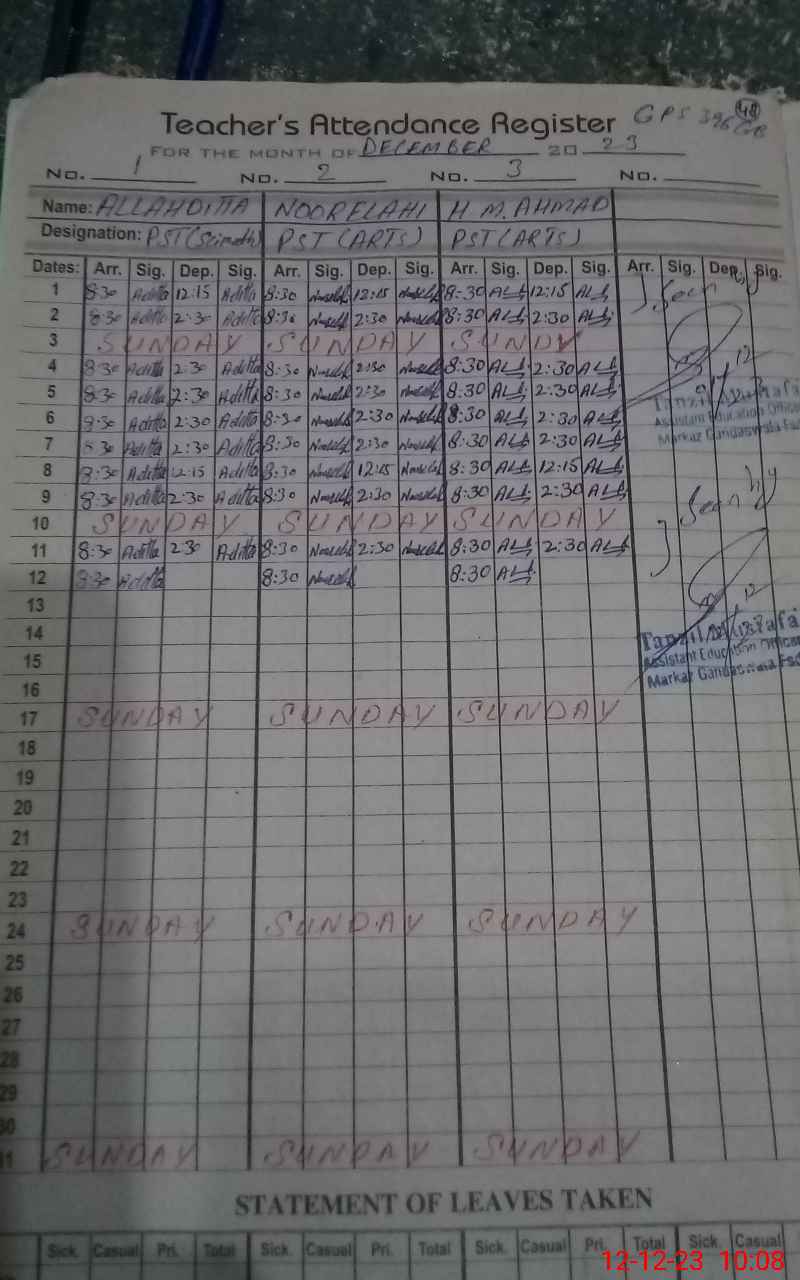 Teacher's Attendance Register GPS 396 GB 48
FOR THE MONTH OF DECEMBER 20 23
No. 1 No. 2 No. 3 No.
Name: ALLAHDITTA NOORELAHI H M. AHMAD
Designation: PST (Sci math) PST (ARTS) PST (ARTS)
Dates: Arr. Sig. Dep. Sig. Arr. Sig. Dep. Sig. Arr. Sig. Dep. Sig. Arr. Sig. Dep. Sig.
1 8:30 Aditta 12:15 Aditta 8:30 12:15 8:30 12:15
2 8:30 Aditta 2:30 Aditta 8:30 2:30 8:30 2:30 Seen by
3 SUNDAY SUNDAY SUNDY
4 8:30 Aditta 2:30 Aditta 8:30 2:30 8:30 2:30
5 8:30 Aditta 2:30 Aditta 8:30 2:30 8:30 2:30
6 8:30 Aditta 2:30 Aditta 8:30 2:30 8:30 2:30 Assistant Education Officer
7 8:30 Aditta 2:30 Aditta 8:30 2:30 8:30 2:30 Markaz Gandaswala Fsd
8 8:30 Aditta 12:15 Aditta 8:30 12:15 8:30 12:15
9 8:30 Aditta 2:30 Aditta 8:30 2:30 8:30 2:30 Seen by
10 SUNDAY SUNDAY SUNDAY
11 8:30 Aditta 2:30 Aditta 8:30 2:30 8:30 2:30
12 8:30 Aditta 8:30 8:30
13
14
15 Assistant Education Officer
16 Markaz Gandaswala Fsd
17 SUNDAY SUNDAY SUNDAY
18
19
20
21
22
23
24 SUNDAY SUNDAY SUNDAY
25
26
27
28
29
30
31 SUNDAY SUNDAY SUNDAY
STATEMENT OF LEAVES TAKEN
Sick. Casual Pri. Total Sick. Casual Pri. Total Sick. Casual Pri. Total Sick. Casual
12-12-23 10:08